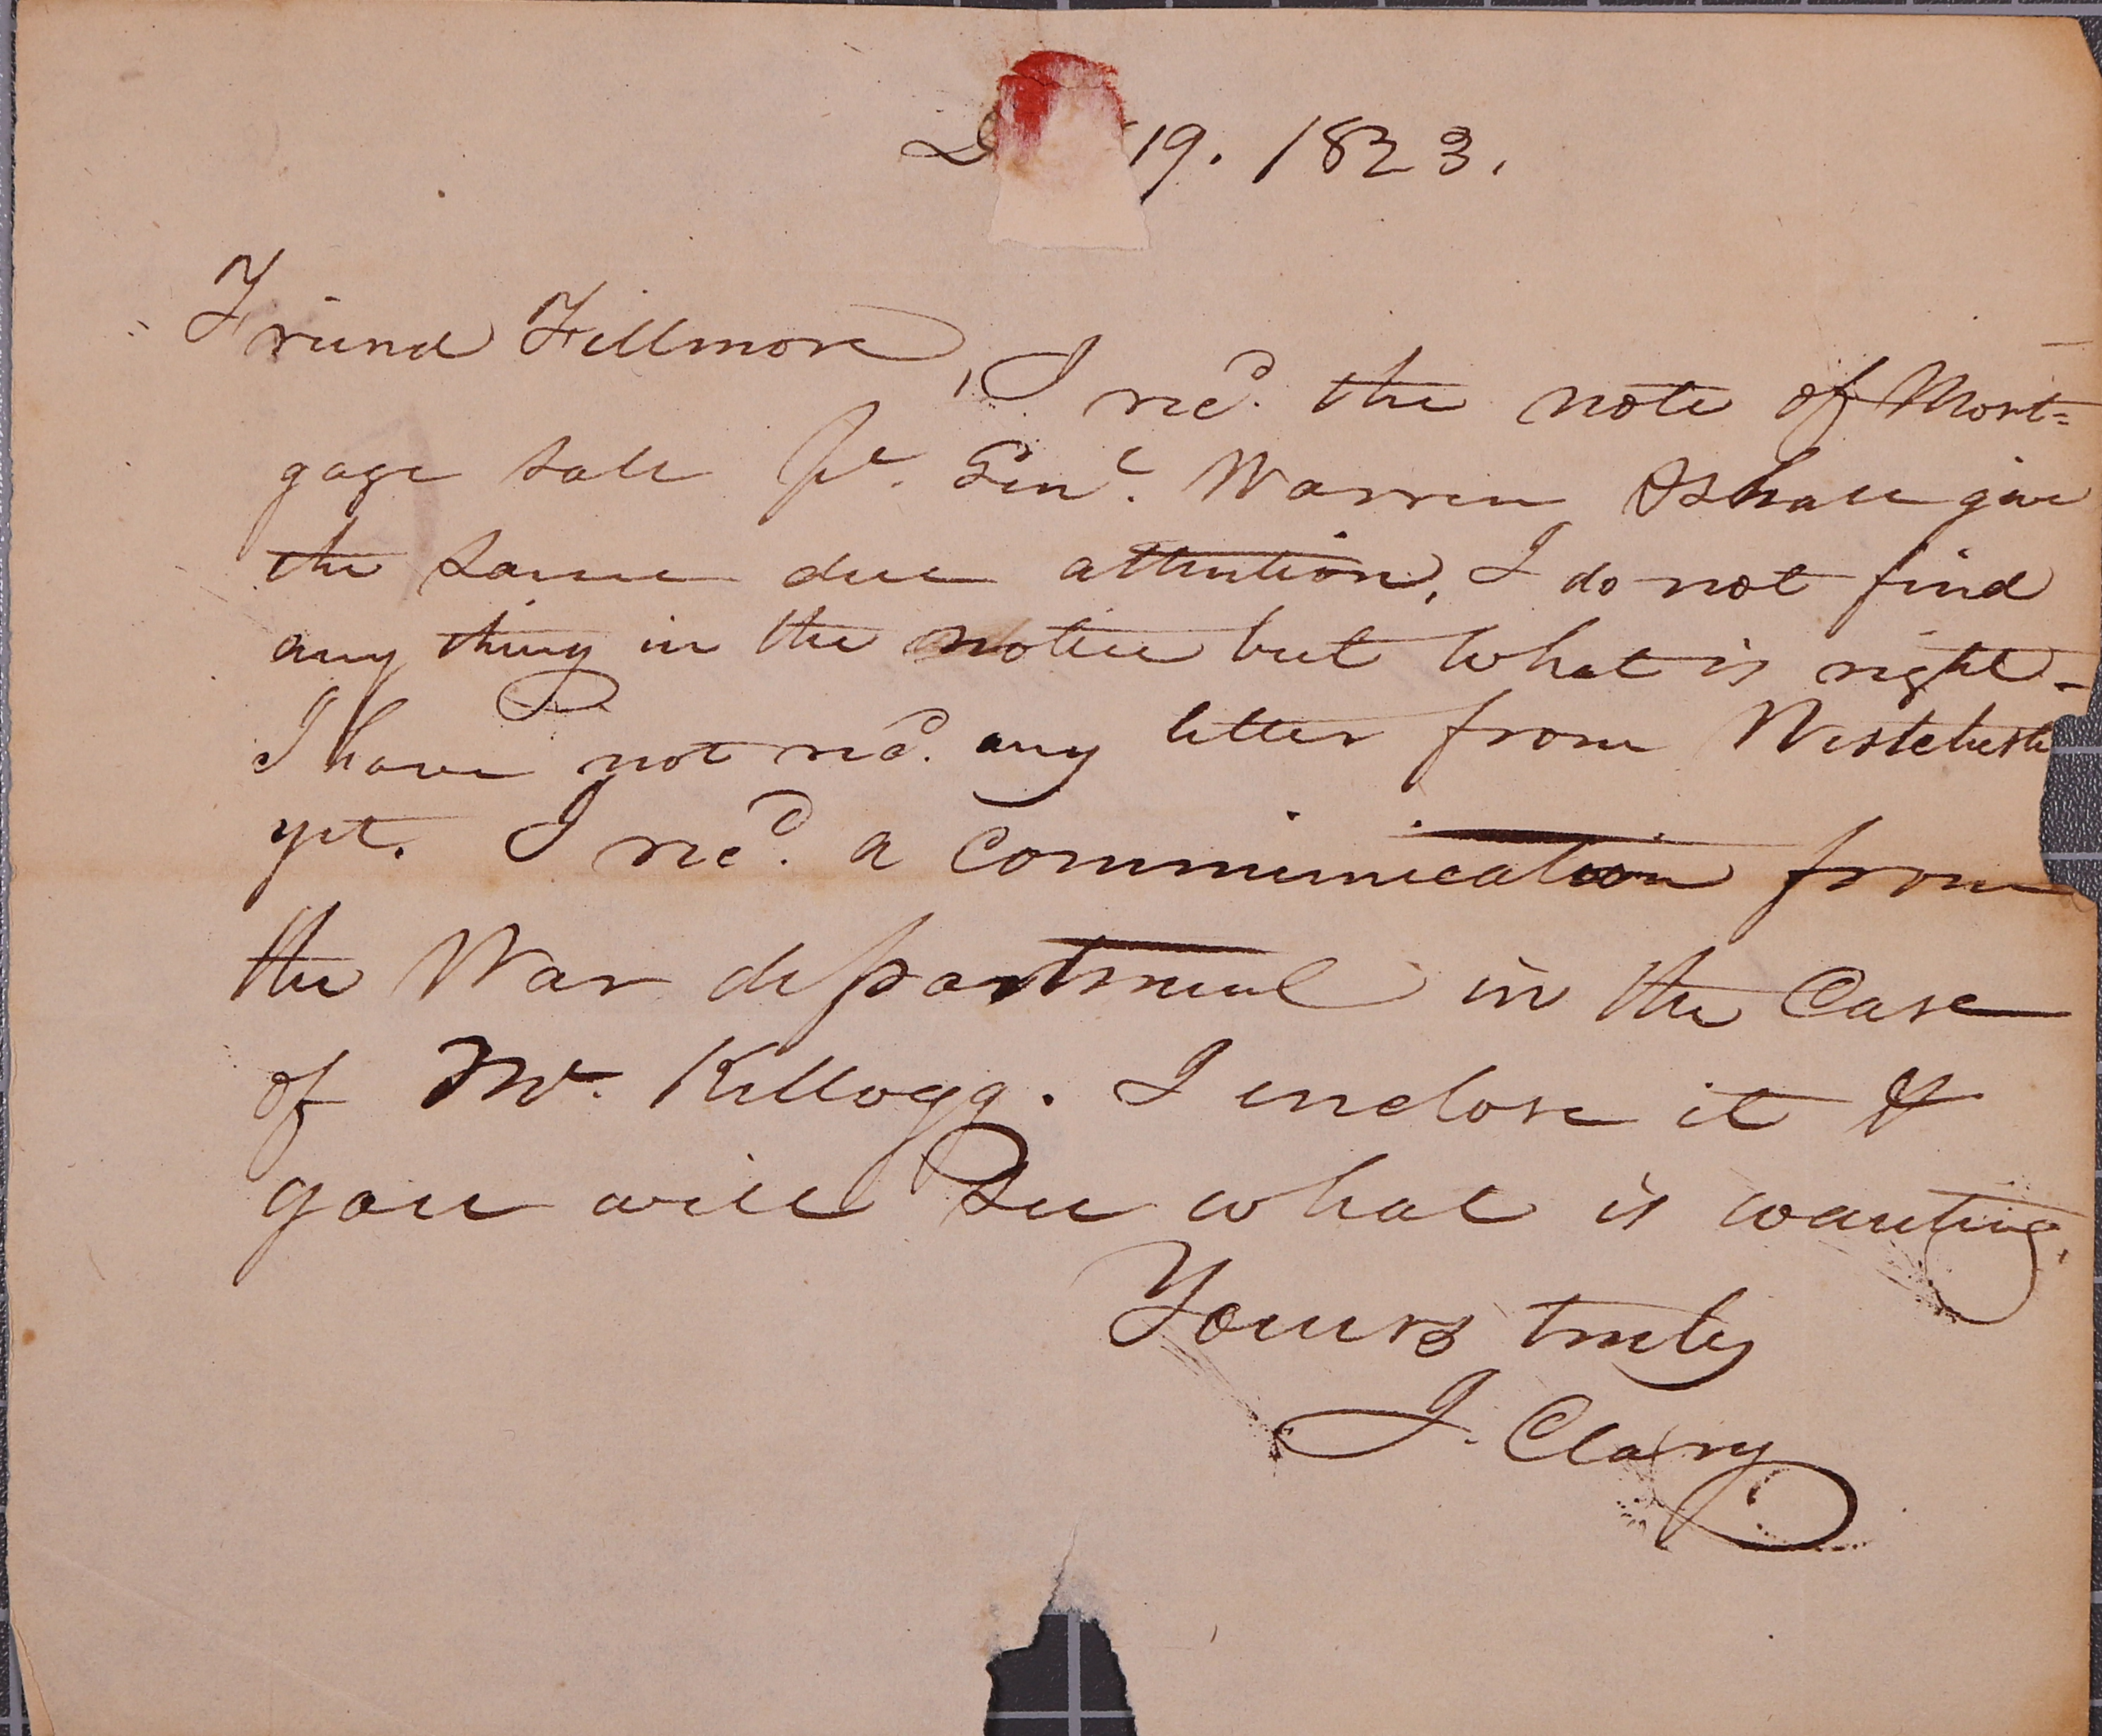 D 19. 1823.
Friend Fillmore,
I recd. the note of Mort=
gage sale pr. Genl. Warren I shall give
the same due attention, I do not find
any thing in the notice but what is right -
I have not recd. any letter from
yet. I recd. a Communication from
the War department in the Case
of Mr. Kellogg. I enclose it &
you will see what is wanting.
Yours truly
J. Clary